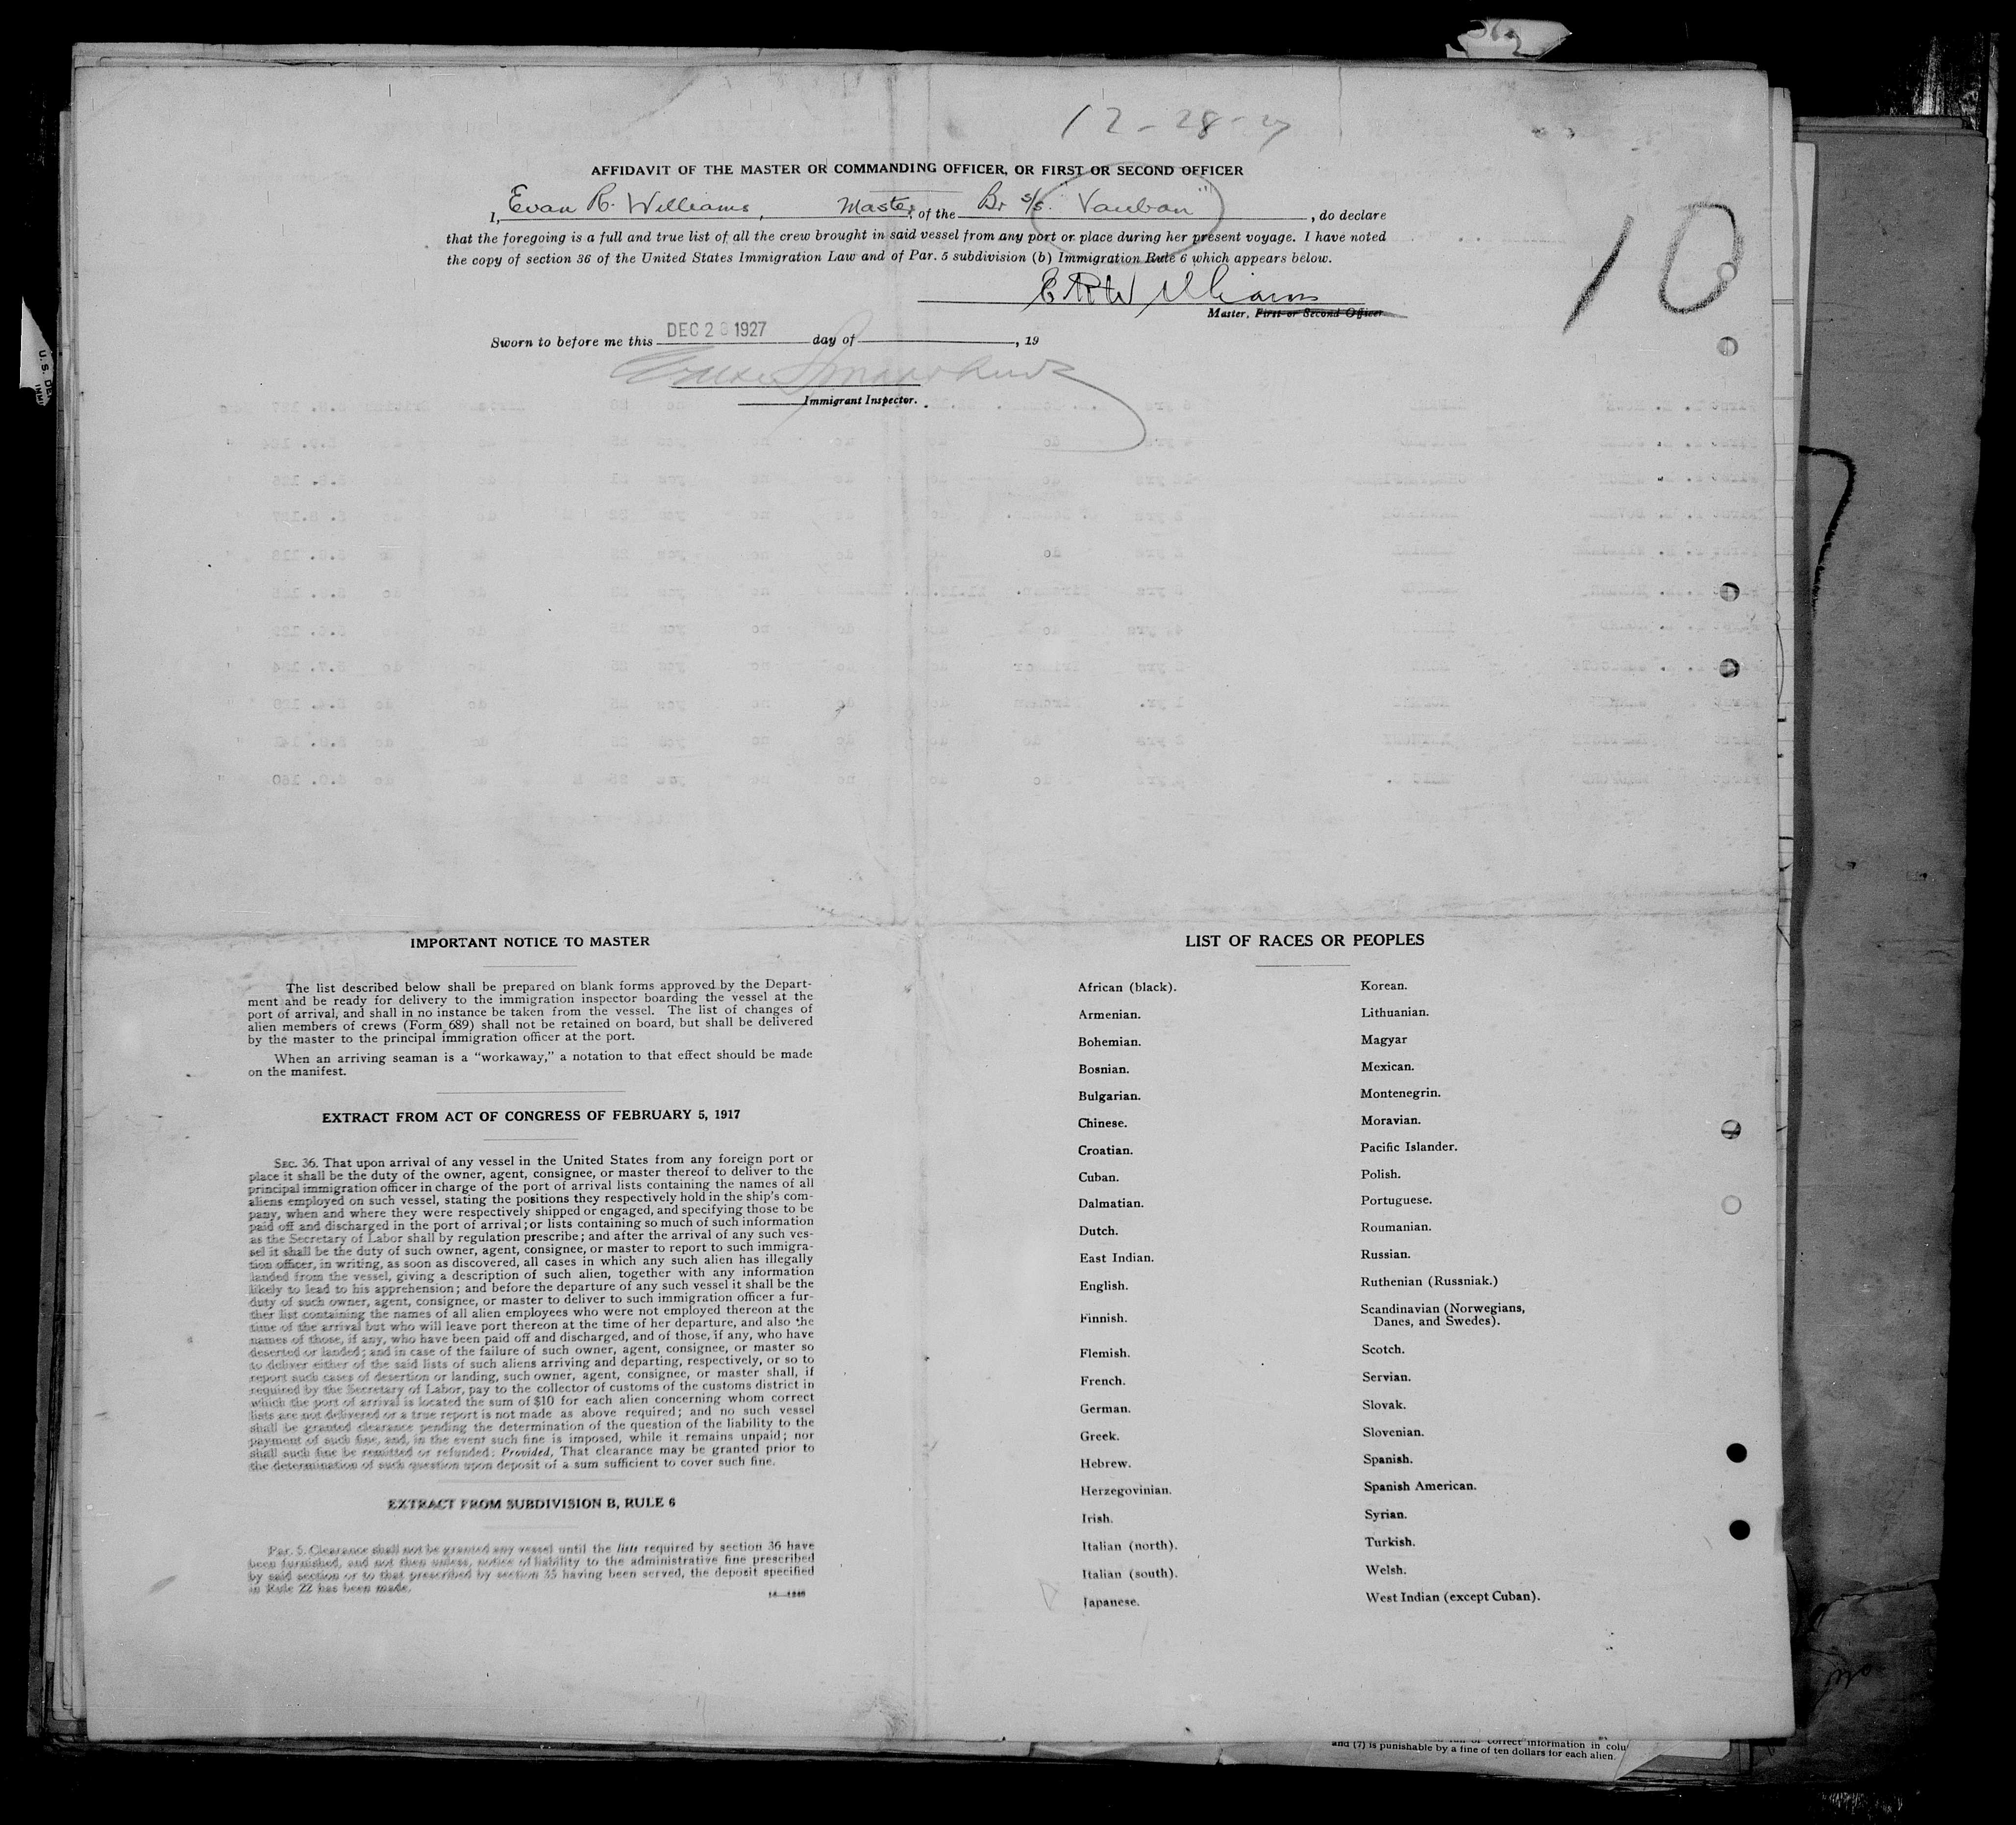 12-28-27
AFFIDAVIT OF THE MASTER OR COMMANDING OFFICER, OR FIRST OR SECOND OFFICER
I, Evan R. Williams, Master, of the Br s/s. "Vauban", do declare
that the foregoing is a full and true list of all the crew brought in said vessel from any port or place during her present voyage. I have noted
the copy of section 36 of the United States Immigration Law and of Par. 5 subdivision (b) Immigration Rule 6 which appears below.
10
Williams
Master, First or Second Officer
Sworn to before me this DEC 28 1927 day of , 19
Immigrant Inspector.
IMPORTANT NOTICE TO MASTER
The list described below shall be prepared on blank forms approved by the Depart-
ment and be ready for delivery to the immigration inspector boarding the vessel at the
port of arrival, and shall in no instance be taken from the vessel. The list of changes of
alien members of crews (Form 689) shall not be retained on board, but shall be delivered
by the master to the principal immigration officer at the port.
When an arriving seaman is a "workaway," a notation to that effect should be made
on the manifest.
EXTRACT FROM ACT OF CONGRESS OF FEBRUARY 5, 1917
SEC. 36. That upon arrival of any vessel in the United States from any foreign port or
place it shall be the duty of the owner, agent, consignee, or master thereof to deliver to the
principal immigration officer in charge of the port of arrival lists containing the names of all
aliens employed on such vessel, stating the positions they respectively hold in the ship's com-
pany, when and where they were respectively shipped or engaged, and specifying those to be
paid off and discharged in the port of arrival; or lists containing so much of such information
as the Secretary of Labor shall by regulation prescribe; and after the arrival of any such ves-
sel it shall be the duty of such owner, agent, consignee, or master to report to such immigra-
tion officer, in writing, as soon as discovered, all cases in which any such alien has illegally
landed from the vessel, giving a description of such alien, together with any information
likely to lead to his apprehension; and before the departure of any such vessel it shall be the
duty of such owner, agent, consignee, or master to deliver to such immigration officer a fur-
ther list containing the names of all alien employees who were not employed thereon at the
time of the arrival but who will leave port thereon at the time of her departure, and also the
names of those, if any, who have been paid off and discharged, and of those, if any, who have
deserted or landed; and in case of the failure of such owner, agent, consignee, or master so
to deliver either of the said lists of such aliens arriving and departing, respectively, or so to
report such cases of desertion or landing, such owner, agent, consignee, or master shall, if
required by the Secretary of Labor, pay to the collector of customs of the customs district in
which the port of arrival is located the sum of $10 for each alien concerning whom correct
lists are not delivered or a true report is not made as above required; and no such vessel
shall be granted clearance pending the determination of the question of the liability to the
payment of such fine, and, in the event such fine is imposed, while it remains unpaid; nor
shall such fine be remitted or refunded: Provided, That clearance may be granted prior to
the determination of such question upon deposit of a sum sufficient to cover such fine.
EXTRACT FROM SUBDIVISION B, RULE 6
Par. 5. Clearance shall not be granted any vessel until the lists required by section 36 have
been furnished, and not then unless, notice of liability to the administrative fine prescribed
by said section or to that prescribed by section 35 having been served, the deposit specified
in Rule 22 has been made.
LIST OF RACES OR PEOPLES
African (black).
Armenian.
Bohemian.
Bosnian.
Bulgarian.
Chinese.
Croatian.
Cuban.
Dalmatian.
Dutch.
East Indian.
English.
Finnish.
Flemish.
French.
German.
Greek.
Hebrew.
Herzegovinian.
Irish.
Italian (north).
Italian (south).
Japanese.
Korean.
Lithuanian.
Magyar
Mexican.
Montenegrin.
Moravian.
Pacific Islander.
Polish.
Portuguese.
Roumanian.
Russian.
Ruthenian (Russniak.)
Scandinavian (Norwegians,
Danes, and Swedes).
Scotch.
Servian.
Slovak.
Slovenian.
Spanish.
Spanish American.
Syrian.
Turkish.
Welsh.
West Indian (except Cuban).
correct information in colu
and (7) is punishable by a fine of ten dollars for each alien.